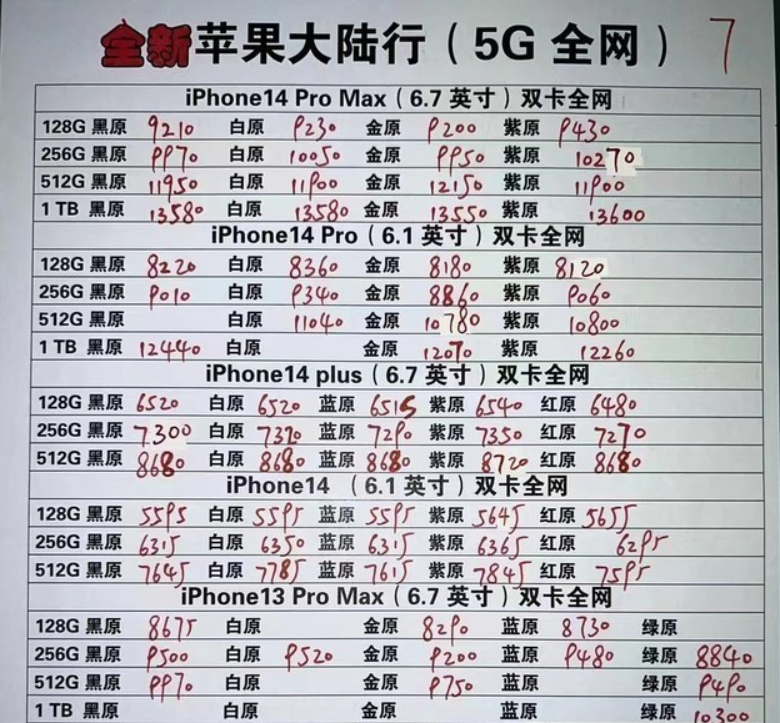 全新苹果大陆行(5G 全网) 7
iPhone14 Pro Max(6.7 英寸)双卡全网
128G 黑原 9210 白原 9230 金原 9200 紫原 9430
256G 黑原 9970 白原 10050 金原 9950 紫原 10270
512G 黑原 11950 白原 11900 金原 12150 紫原 11900
1 TB 黑原 13580 白原 13580 金原 13550 紫原 13600
iPhone14 Pro(6.1 英寸)双卡全网
128G 黑原 8220 白原 8360 金原 8180 紫原 8120
256G 黑原 9010 白原 9340 金原 8860 紫原 9060
512G 黑原 白原 11040 金原 10780 紫原 10800
1 TB 黑原 12440 白原 金原 12070 紫原 12260
iPhone14 plus(6.7 英寸)双卡全网
128G 黑原 6520 白原 6520 蓝原 6515 紫原 6540 红原 6480
256G 黑原 7300 白原 7320 蓝原 7290 紫原 7350 红原 7270
512G 黑原 8680 白原 8680 蓝原 8680 紫原 8720 红原 8680
iPhone14 (6.1 英寸)双卡全网
128G 黑原 5595 白原 5595 蓝原 5595 紫原 5645 红原 5655
256G 黑原 6315 白原 6350 蓝原 6315 紫原 6365 红原 6295
512G 黑原 7645 白原 7785 蓝原 7615 紫原 7845 红原 7595
iPhone13 Pro Max(6.7 英寸)双卡全网
128G 黑原 8675 白原 金原 8290 蓝原 8730 绿原
256G 黑原 9500 白原 9520 金原 9200 蓝原 9480 绿原 8840
512G 黑原 9970 白原 金原 9750 蓝原 绿原 9490
1 TB 黑原 白原 金原 蓝原 绿原 10300